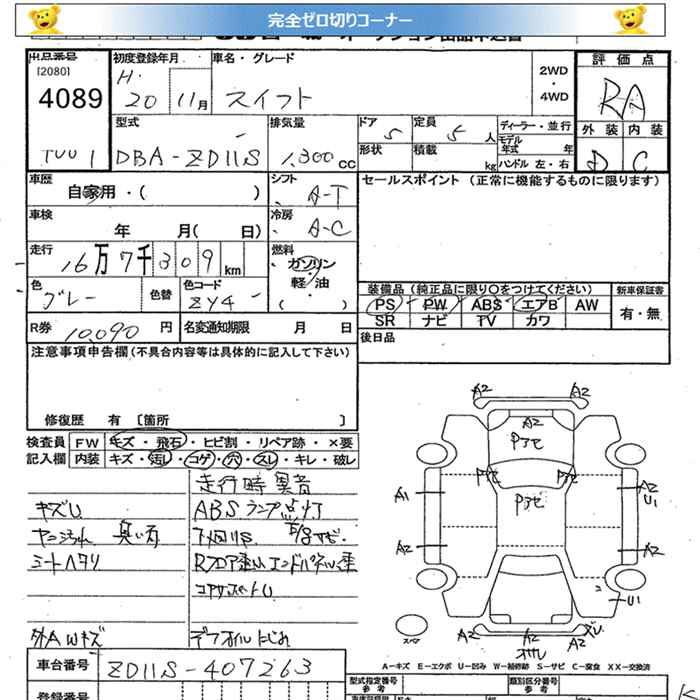 完全ゼロ切りコーナー
出品番号
[2080]
4089
TUU 1
初度登録年月
H.
20 11月
車名・グレード
スイフト
2WD
・
4WD
評価点
RA
外装 内装
D C
型式
DBA-ZD11S
排気量
1,300cc
ドア 5
定員 5人
形状
積載 kg
ディーラー・並行
モデル年式 年
ハンドル 左・右
車歴
自家用・( )
シフト
A-T
セールスポイント(正常に機能するものに限ります)
車検
年 月( 日)
冷房
A-C
走行
16万7千309km
燃料
ガソリン
軽/油
( )
色
グレー
色替
色コード
ZY4
装備品(純正品に限り○をつけてください)
新車保証書
PS PW ABS エアB AW
有・無
SR ナビ TV カワ
R券 10,090円
名変通知期限 月 日
後日品
注意事項申告欄(不具合内容等は具体的に記入して下さい)
修復歴 有 〔箇所 〕
検査員 FW キズ・飛石・ヒビ割・リペア跡・×要
記入欄 内装 キズ・汚レ・コゲ・穴・スレ・キレ・破レ
走行時異音
キズU
ABSランプ点灯
臭い有
シートヘタリ
コアサポートU
外AWキズ
デフオイルにじみ
A2 A2
A2
Pアセ
Pアセ Pアセ
Pアセ
A1
A2
U1
A2
A2
U1
スペア
A2
A2
A2
A-キズ E-エクボ U-凹み W-補修跡 S-サビ C-腐食 XX-交換済
車台番号
ZD11S-407263
登録番号
型式指定番号
参考
類別区分番号
参考